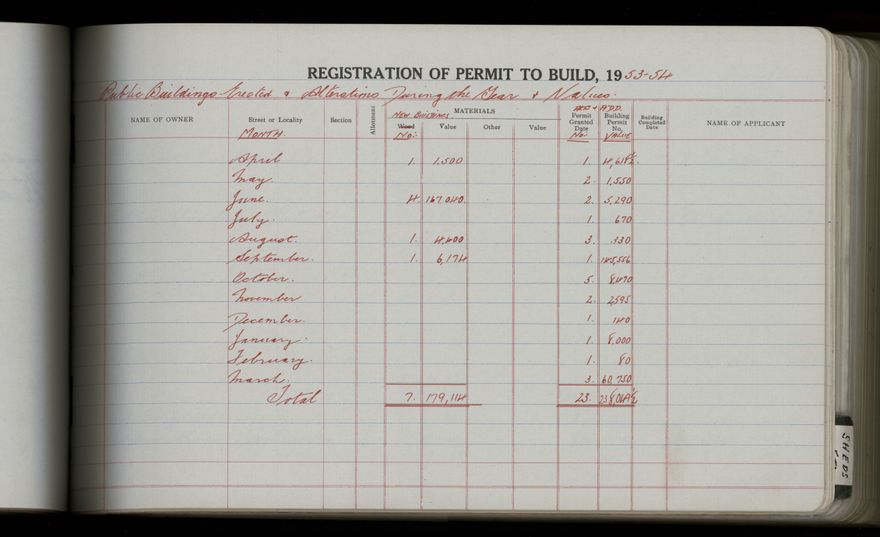 REGISTRATION OF PERMIT TO BUILD, 1953-54
Public Buildings Erected & Alterations During the Year & Values.
NAME OF OWNER Street or Locality Section Allotment MATERIALS Permit Granted Date Building Permit No. Building Completed Date NAME OF APPLICANT
NEW BUILDINGS ALTS & ADD.
Wood Value Other Value
MONTH. No: No. VALUE
April 1. 1,500 1. 4,618½.
May. 2. 1,550
June. 4. 167,040. 2. 5,290
July. 1. 670
August. 1. 4,400 3. 330
September. 1. 6,174 1. 145,556
October. 5. 8,470
November 2. 2,595
December. 1. 140
January. 1. 8,000
February. 1. 80
March. 3. 60,750
Total 7. 179,114 23. 238,049½
SHEDS